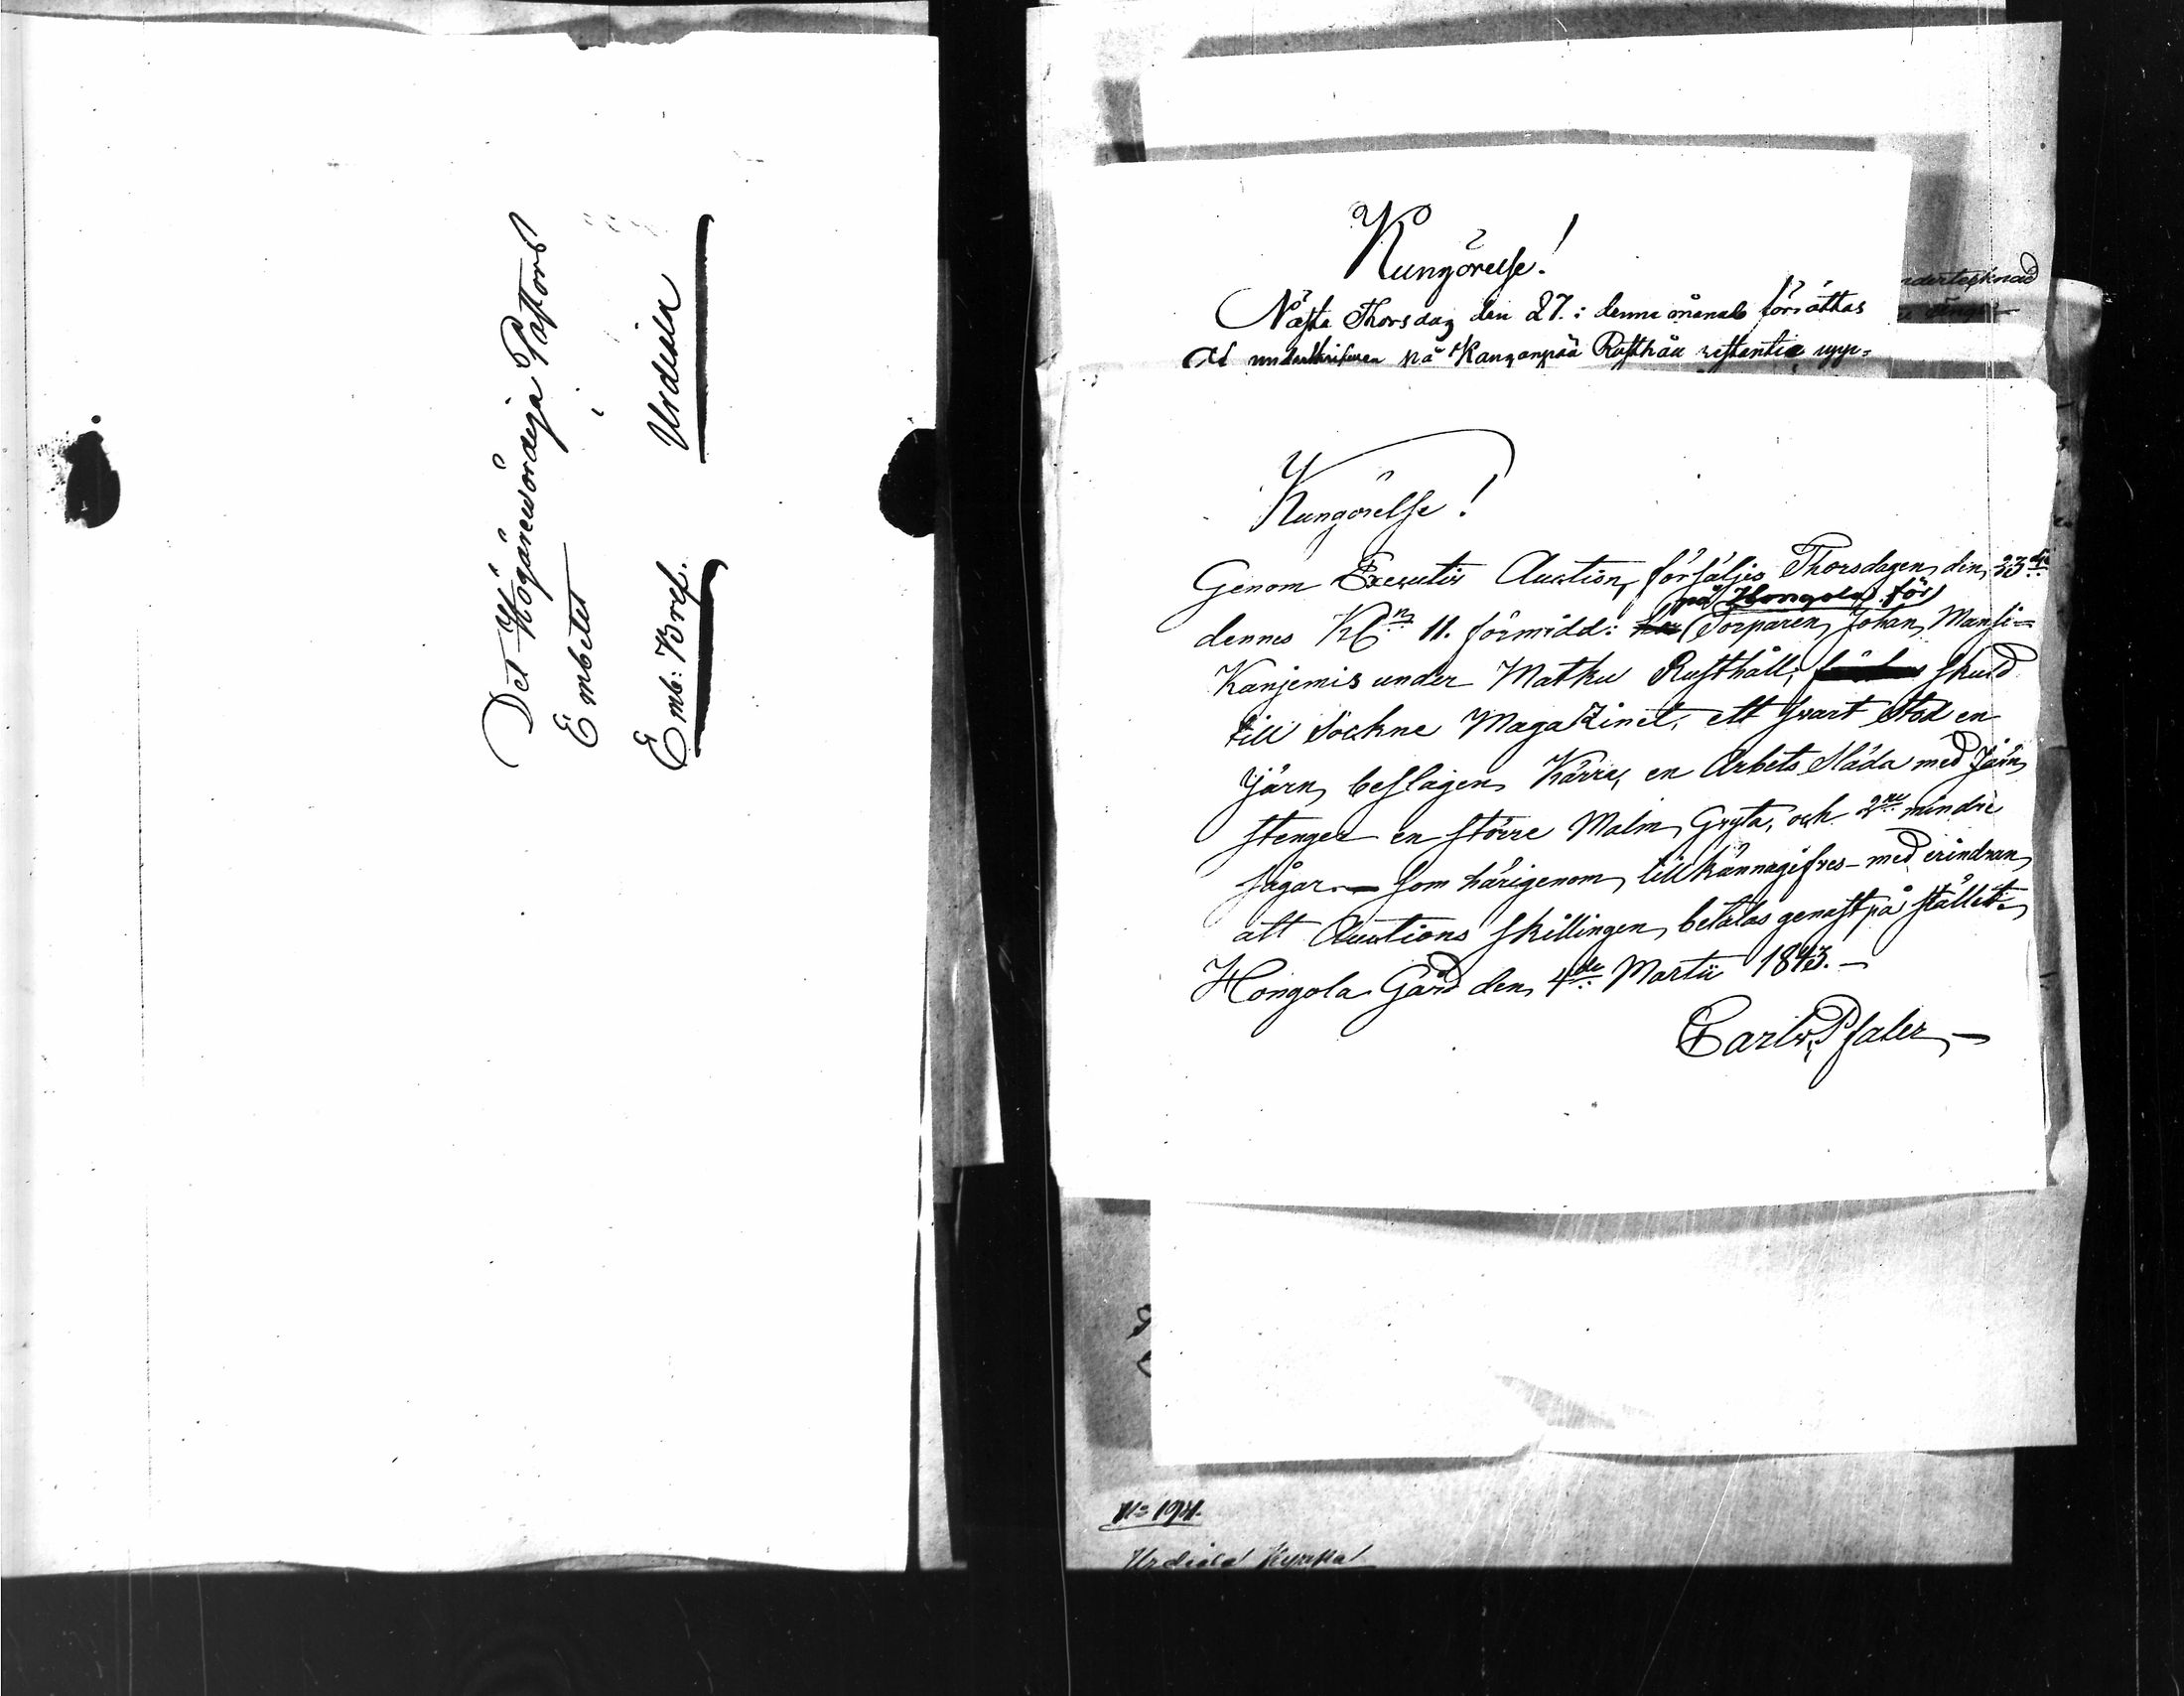 Det Högärewördiga Pastors
Embetet
i
Urdiala
Emb: Bref.
ndertecknad
Kungörelse!
Nästa Thorsdag den 27. i denna månad förrättas
af underskrifven på Kanganpää Rusthåll restantie upp-
Kungörelse!
Genom Executiv Auction, försäljes Thorsdagen den 23de
på Hongola för
dennes Kln 11. förmidd: Torparen Johan Mansi-
Kanjemis under Matku Rusthåll, skuld
till Sockne Magazinet, ett swart Stod en
Järn beslagen Kärra, en Arbets Släda med Järn
stenger en större Malm Gryta, och 2ne mindre
sågar. som härigenom tillkännagifves med erindran,
att Auctions skillingen betalas genast på stället.
Hongola Gård den 4de Martii 1843.
Carl v. Pfaler
No 194.
Urdiala Kyrka